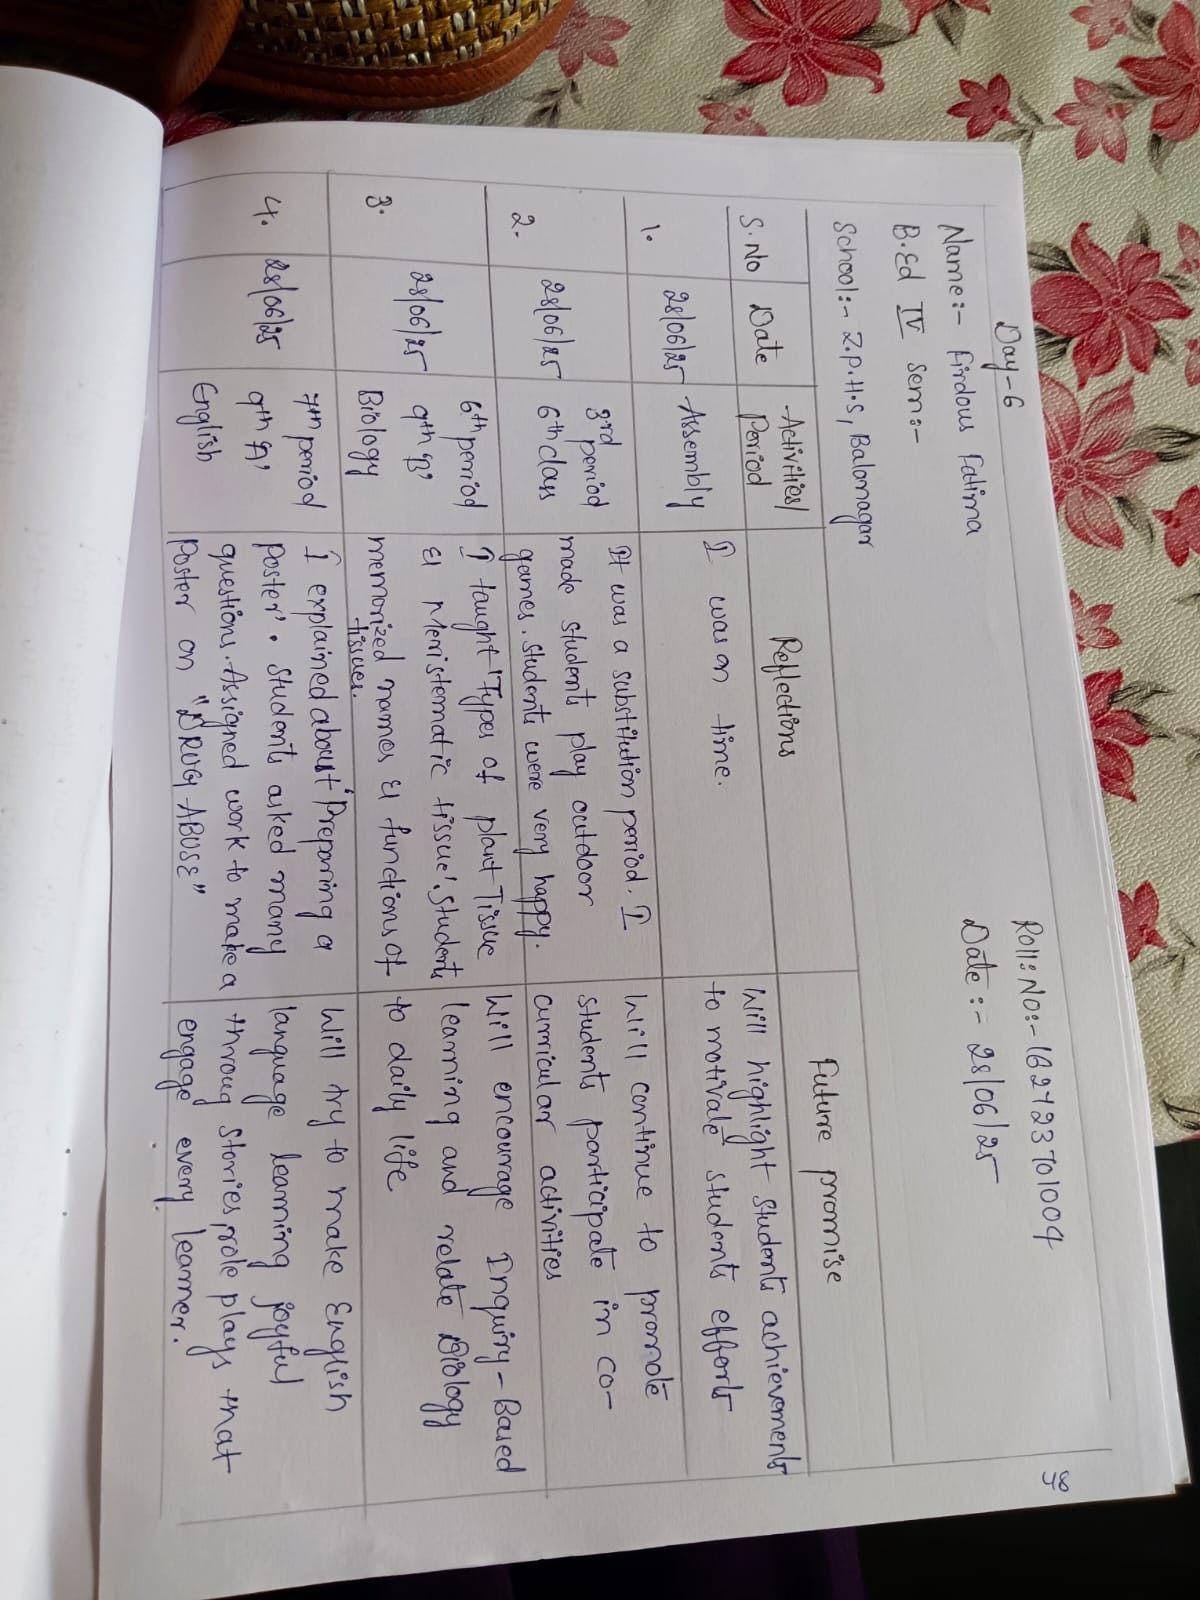 48
Day-6
Roll: No:- 162423701004
Name:- Firdous Fatima
Date:- 28/06/25
B.Ed IV Sem:-
School:- Z.P.H.S, Balanagar
S.No
Date
Activities/
Period
Reflections
Future promise
1.
28/06/25
Assembly
I was on time.
Will highlight students achievements
to motivate students efforts
2.
28/06/25
3rd period
6th class
It was a substitution period. I
made students play outdoor
games. Students were very happy.
Will continue to promote
students participate in co-
curricular activities
3.
28/06/25
6th period
9th 'B'
Biology
I taught "Types of plant Tissue
& Meristematic tissue'. Students
memorized names & functions of
tissues.
Will encourage Inquiry-Based
learning and relate Biology
to daily life
4.
28/06/25
7th period
9th 'A'
English
I explained about 'Preparing a
poster'. Students asked many
questions. Assigned work to make a
Poster on "DRUG ABUSE"
Will try to make English
language learning joyful
throug stories, role plays that
engage every learner.